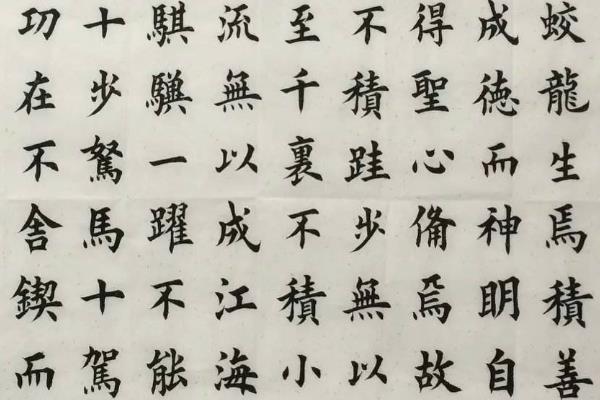 蛟龍生焉積善
成德而神明自
得聖心俻焉故
不積跬步無以
至千裏不積小
流無以成江海
騏驥一躍不能
十步駑馬十駕
功在不舍鍥而